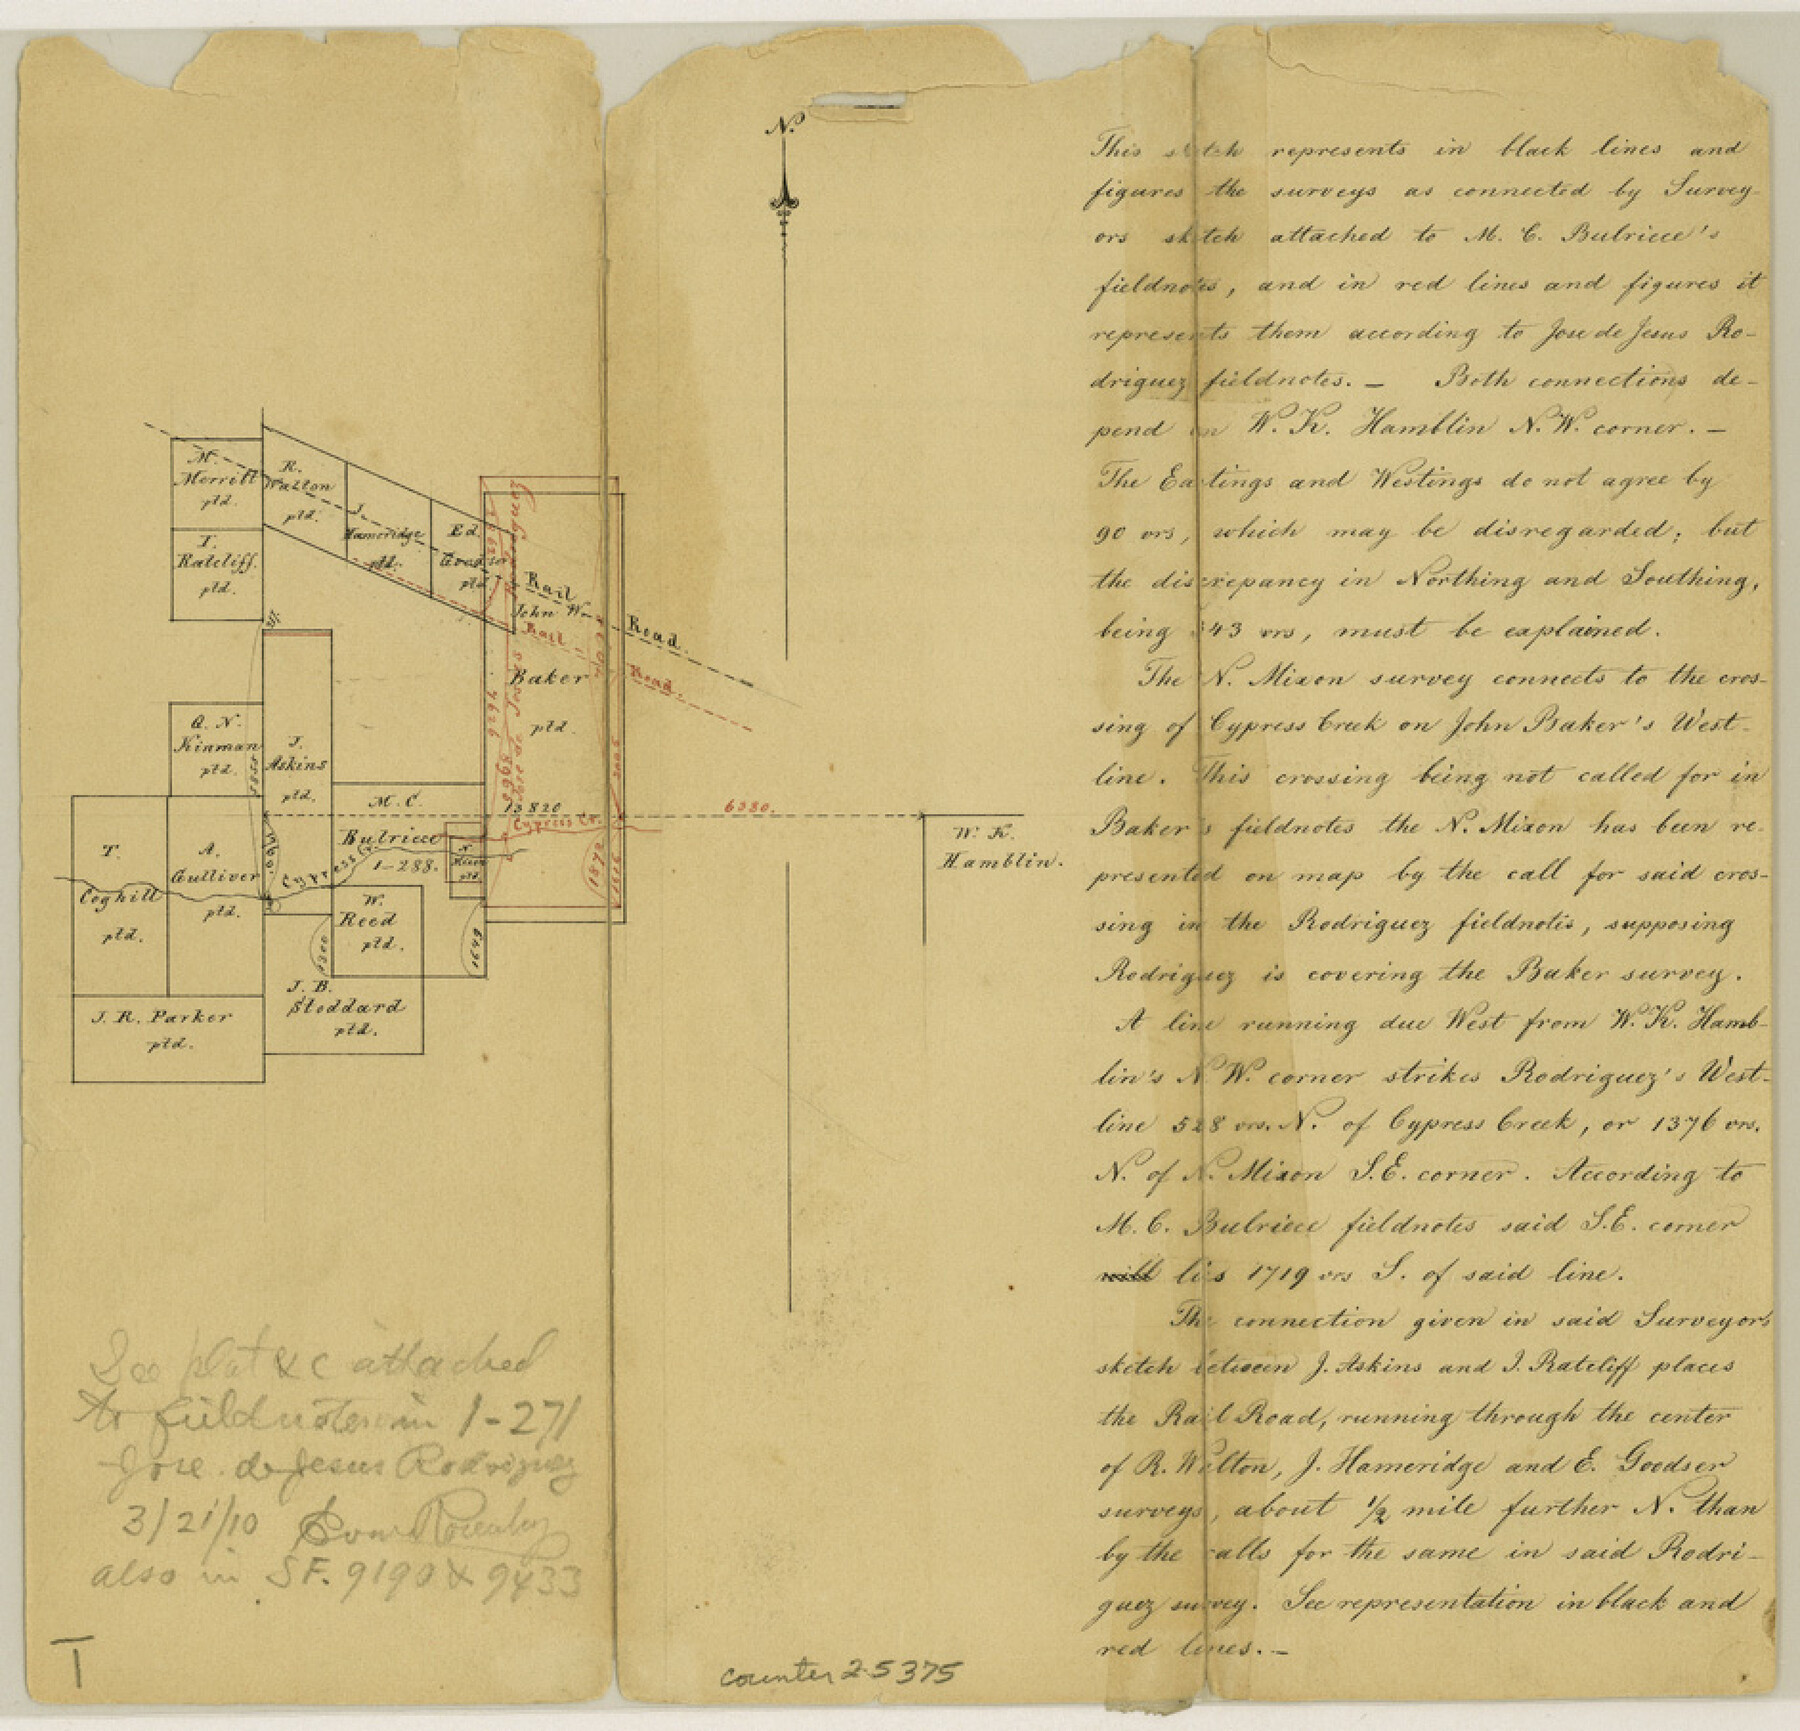 N.
M.
Merritt
ptd.
R.
Walton
ptd.
J.
Hameridge
ptd.
Ed.
ptd.
I.
Ratcliff.
ptd.
Rail Road.
Rail Road.
John W.
Baker
ptd.
Q. N.
Kinman
ptd.
J.
Askins
ptd.
M. C.
Bulriece
1-288.
13820
6380.
Cypress Cr.
Cypress
4626
1872
N.
Mixon
ptd.
W. K.
Hamblin.
T.
Coghill
ptd.
A.
Gulliver
ptd.
W.
Reed
ptd.
1300
1491
J. B.
Stoddard
ptd.
J. R. Parker
ptd.
See plat &c attached
to fieldnotes in 1-271
Jose de Jesus Rodriguez
3/21/10
also in S.F. 9190 & 9433
1
counter 25375
This sketch represents in black lines and
figures the surveys as connected by Survey-
ors sketch attached to M. C. Bulriece's
fieldnotes, and in red lines and figures it
represents them according to Jose de Jesus Ro-
driguez fieldnotes. — Both connections de-
pend on W. K. Hamblin N.W. corner. —
The Eastings and Westings do not agree by
90 vrs, which may be disregarded; but
the discrepancy in Northing and Southing,
being 343 vrs, must be explained.
The N. Mixon survey connects to the cros-
sing of Cypress Creek on John Baker's West-
line. This crossing being not called for in
Baker's fieldnotes the N. Mixon has been re-
presented on map by the call for said cros-
sing in the Rodriguez fieldnotes, supposing
Rodriguez is covering the Baker survey.
A line running due West from W. K. Hamb-
lin's N.W. corner strikes Rodriguez's West-
line 528 vrs. N. of Cypress Creek, or 1376 vrs.
N. of N. Mixon S.E. corner. According to
M. C. Bulriece fieldnotes said S.E. corner
will lies 1719 vrs S. of said line.
The connection given in said Surveyors
sketch between J. Askins and I. Ratcliff places
the Rail Road, running through the center
of R. Walton, J. Hameridge and E. Goodser
surveys, about 1/2 mile further N. than
by the calls for the same in said Rodri-
guez survey. See representation in black and
red lines. —